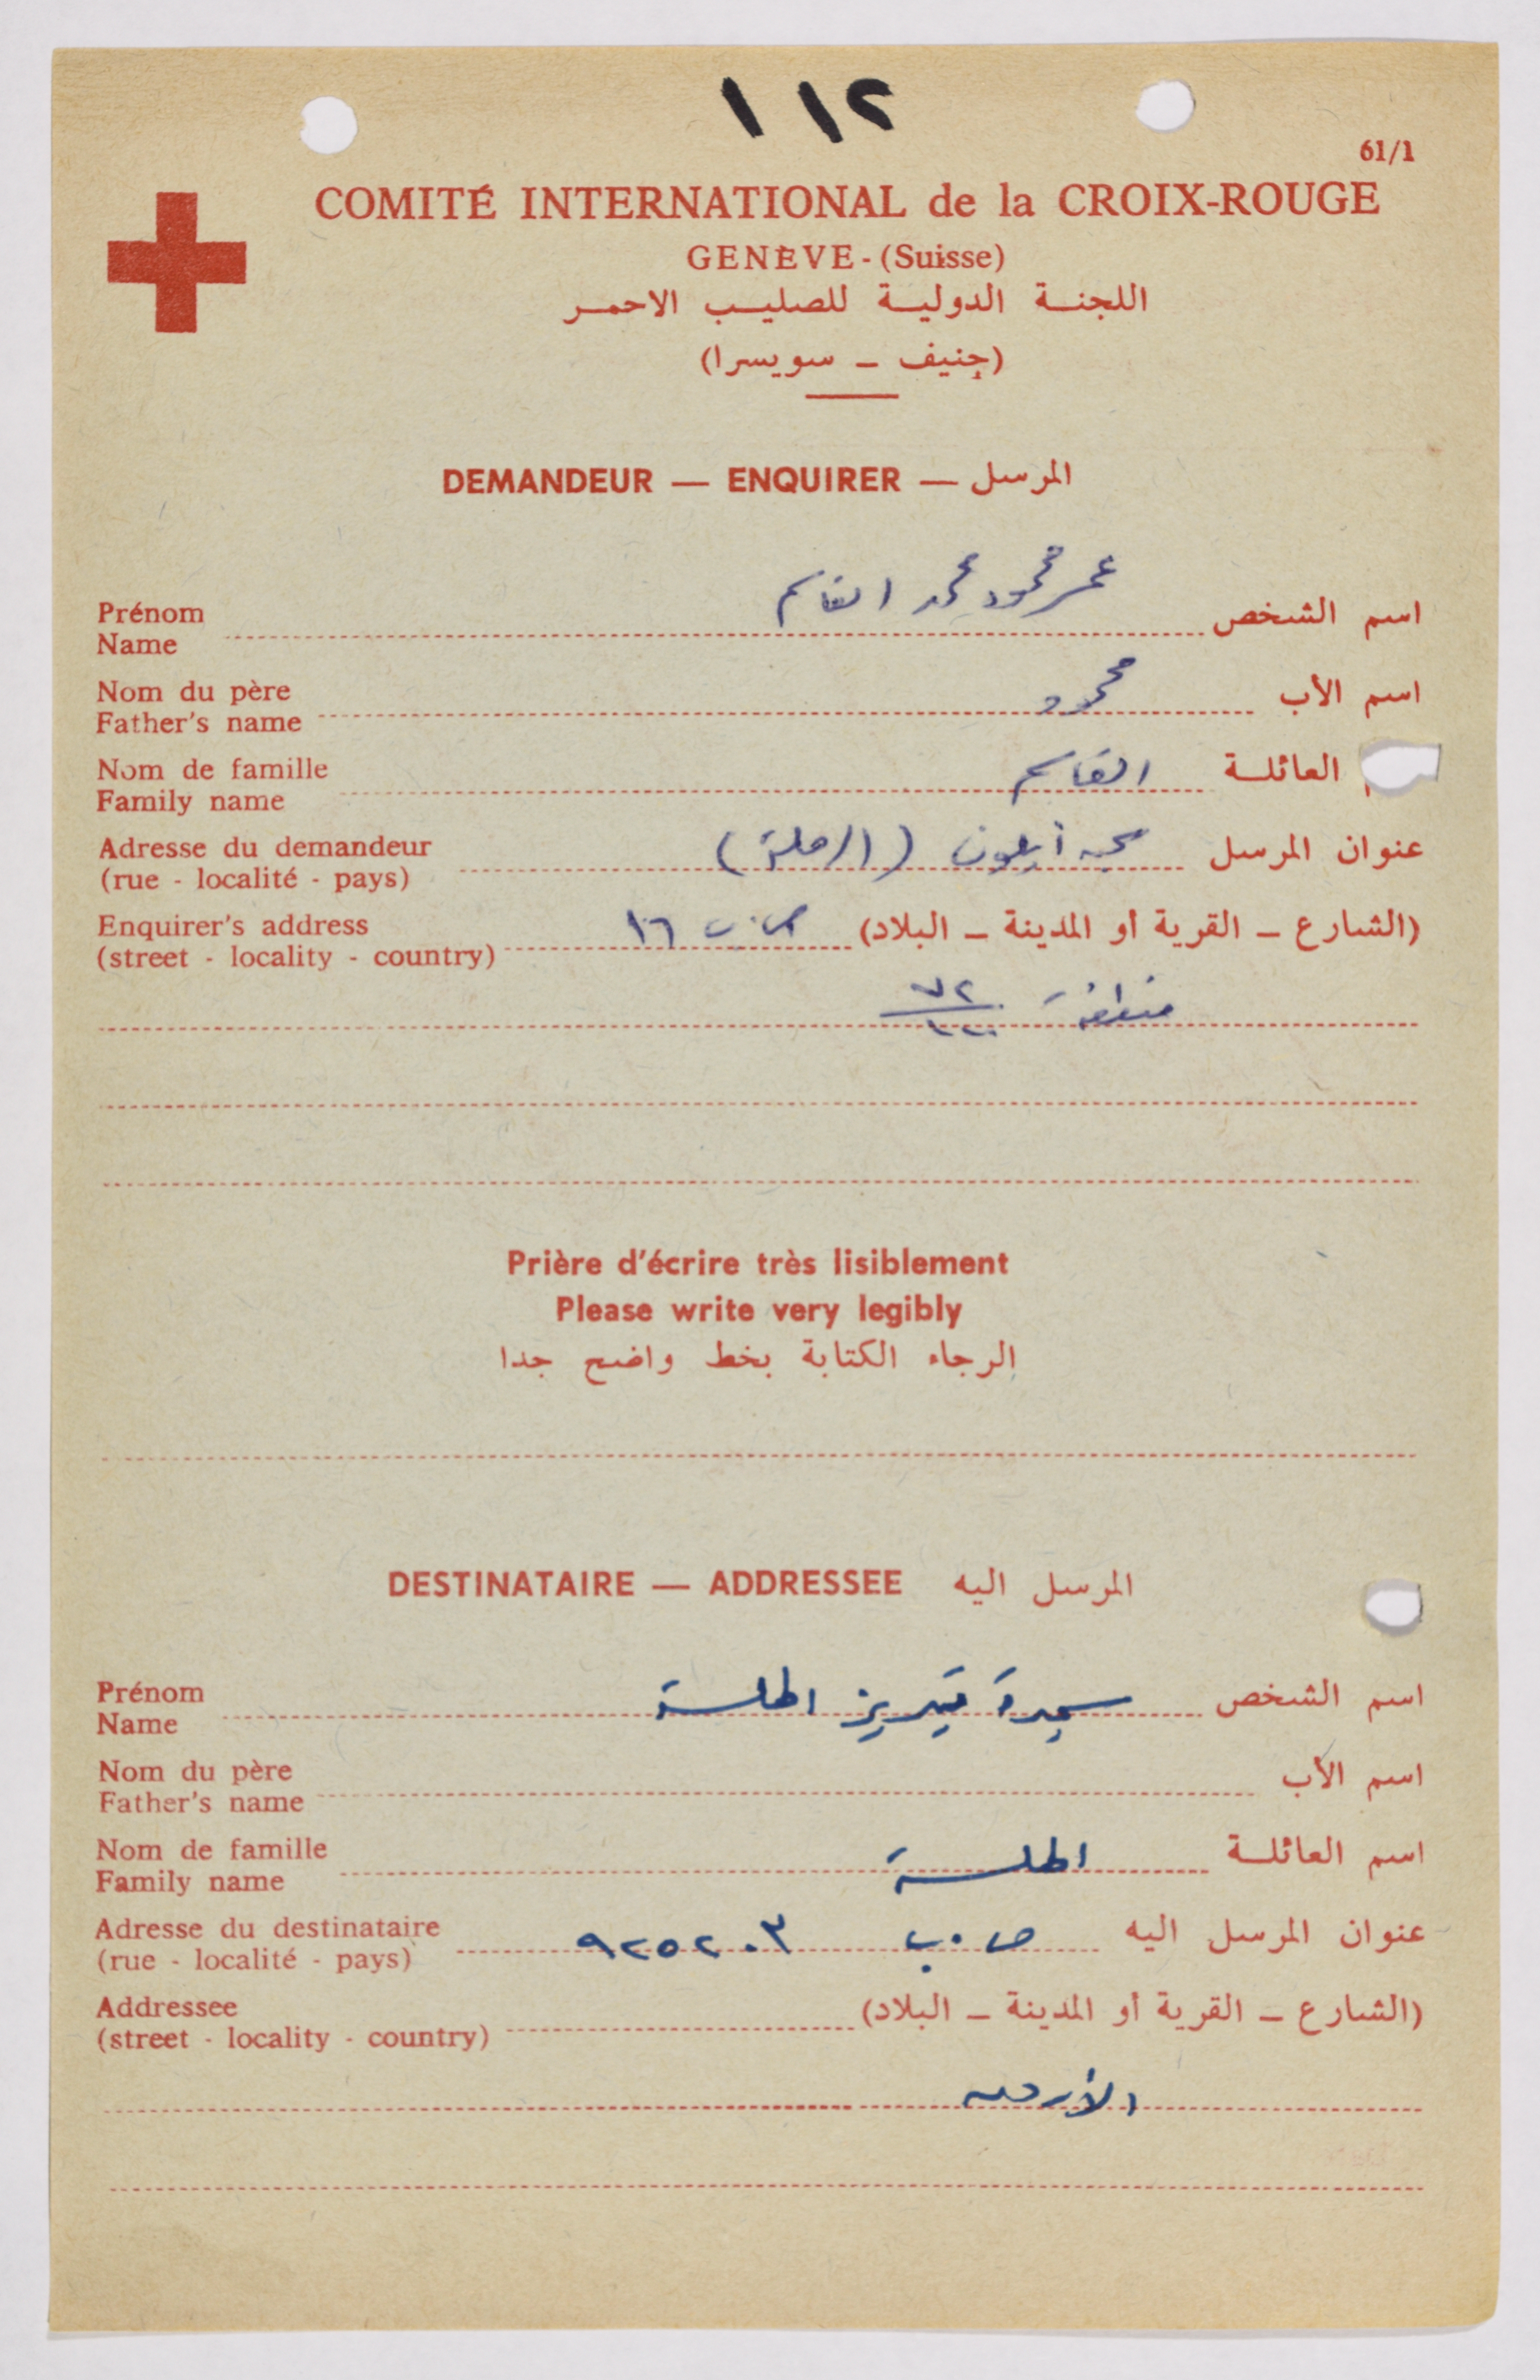 ١١٢
61/1
COMITÉ INTERNATIONAL de la CROIX-ROUGE
GENÈVE - (Suisse)
اللجنة الدولية للصليب الاحمر
(جنيف – سويسرا)
DEMANDEUR — ENQUIRER — المرسل
Prénom
Name
اسم الشخص عمر محمود محمد القاسم
Nom du père
Father's name
اسم الأب محمود
Nom de famille
Family name
العائلة القاسم
Adresse du demandeur
(rue - localité - pays)
عنوان المرسل سجن أيلون (الرملة)
Enquirer's address
(street - locality - country)
(الشارع – القرية أو المدينة – البلاد) ص.ب ١٦
منطقة ٧٢
Prière d'écrire très lisiblement
Please write very legibly
الرجاء الكتابة بخط واضح جدا
DESTINATAIRE — ADDRESSEE المرسل اليه
Prénom
Name
اسم الشخص سيدة تيريز الهلسة
Nom du père
Father's name
اسم الأب
Nom de famille
Family name
اسم العائلة الهلسة
Adresse du destinataire
(rue - localité - pays)
عنوان المرسل اليه ص.ب ٩٢٥٢٠٣
Addressee
(street - locality - country)
(الشارع – القرية أو المدينة – البلاد)
الأردن